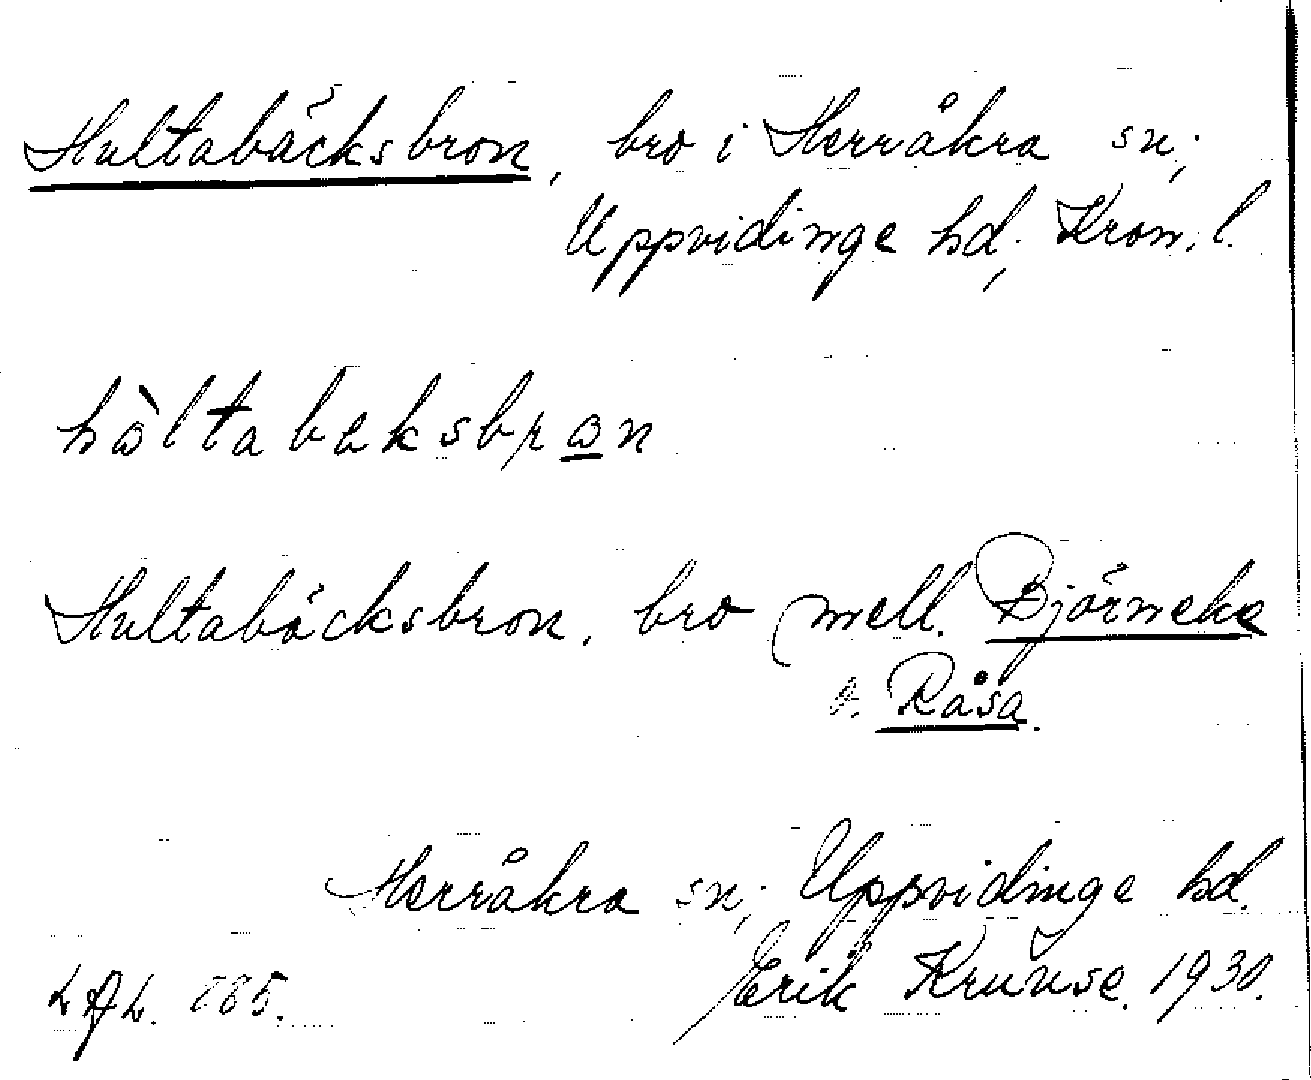 Hultabäcksbron, bro i Herråkra sn,
Uppvidinge hd, Kron. l.
Hultabäcksbron, bro mell. Björneke
o. Råsa.
Herråkra sn, Uppvidinge hd.
Erik Kruuse. 1930.